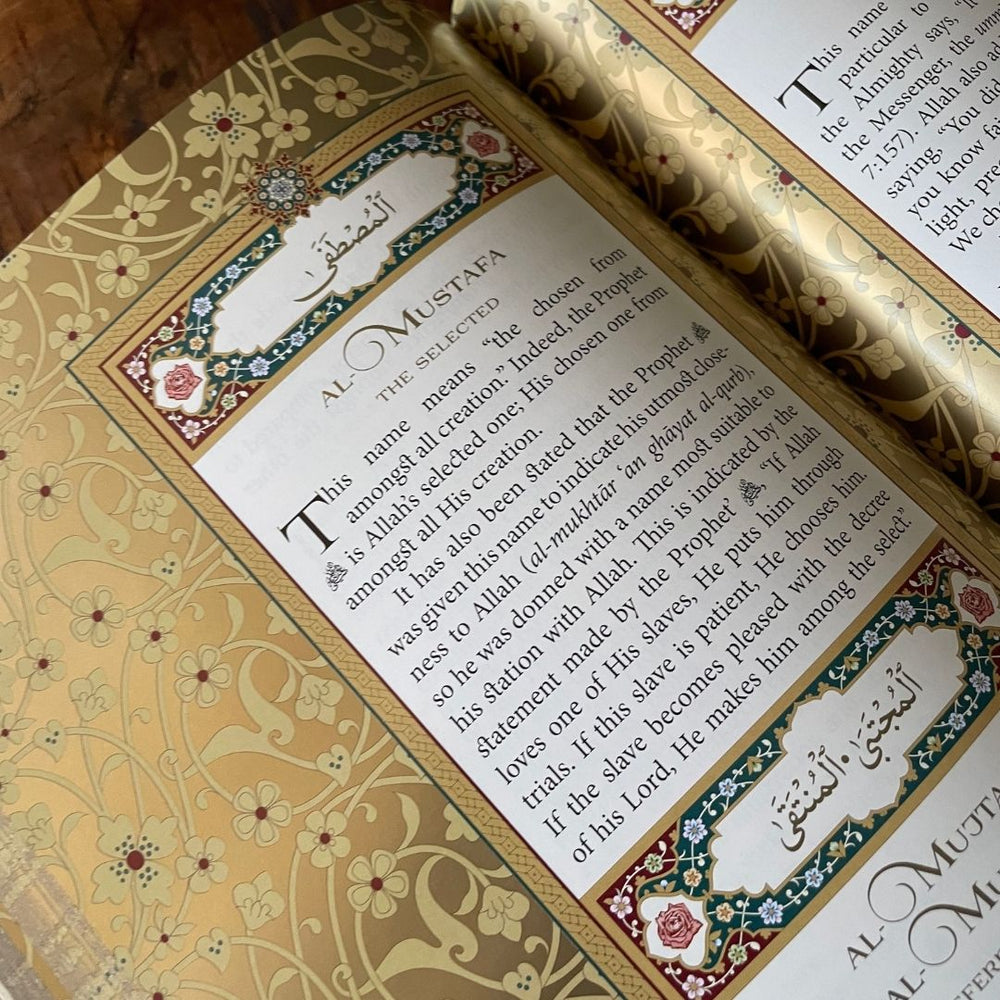 ٱلْمُصْطَفَىٰ
AL-MUSTAFA
THE SELECTED
This name means “the chosen from
amongst all creation.” Indeed, the Prophet
ﷺ is Allah’s selected one; His chosen one from
amongst all His creation.
It has also been stated that the Prophet ﷺ
was given this name to indicate his utmost close-
ness to Allah (al-mukhtār ‘an ghāyat al-qurb),
so he was donned with a name most suitable to
his station with Allah. This is indicated by the
statement made by the Prophet’ ﷺ, “If Allah
loves one of His slaves, He puts him through
trials. If this slave is patient, He chooses him.
If the slave becomes pleased with the decree
of his Lord, He makes him among the select.”
ٱلْمُجْتَبَىٰ • ٱلْمُنْتَقَىٰ
AL-
AL-
This name
particular to
the Almighty says, “
the Messenger, the
7:157). Allah also
saying, “You did
you know
light,
We